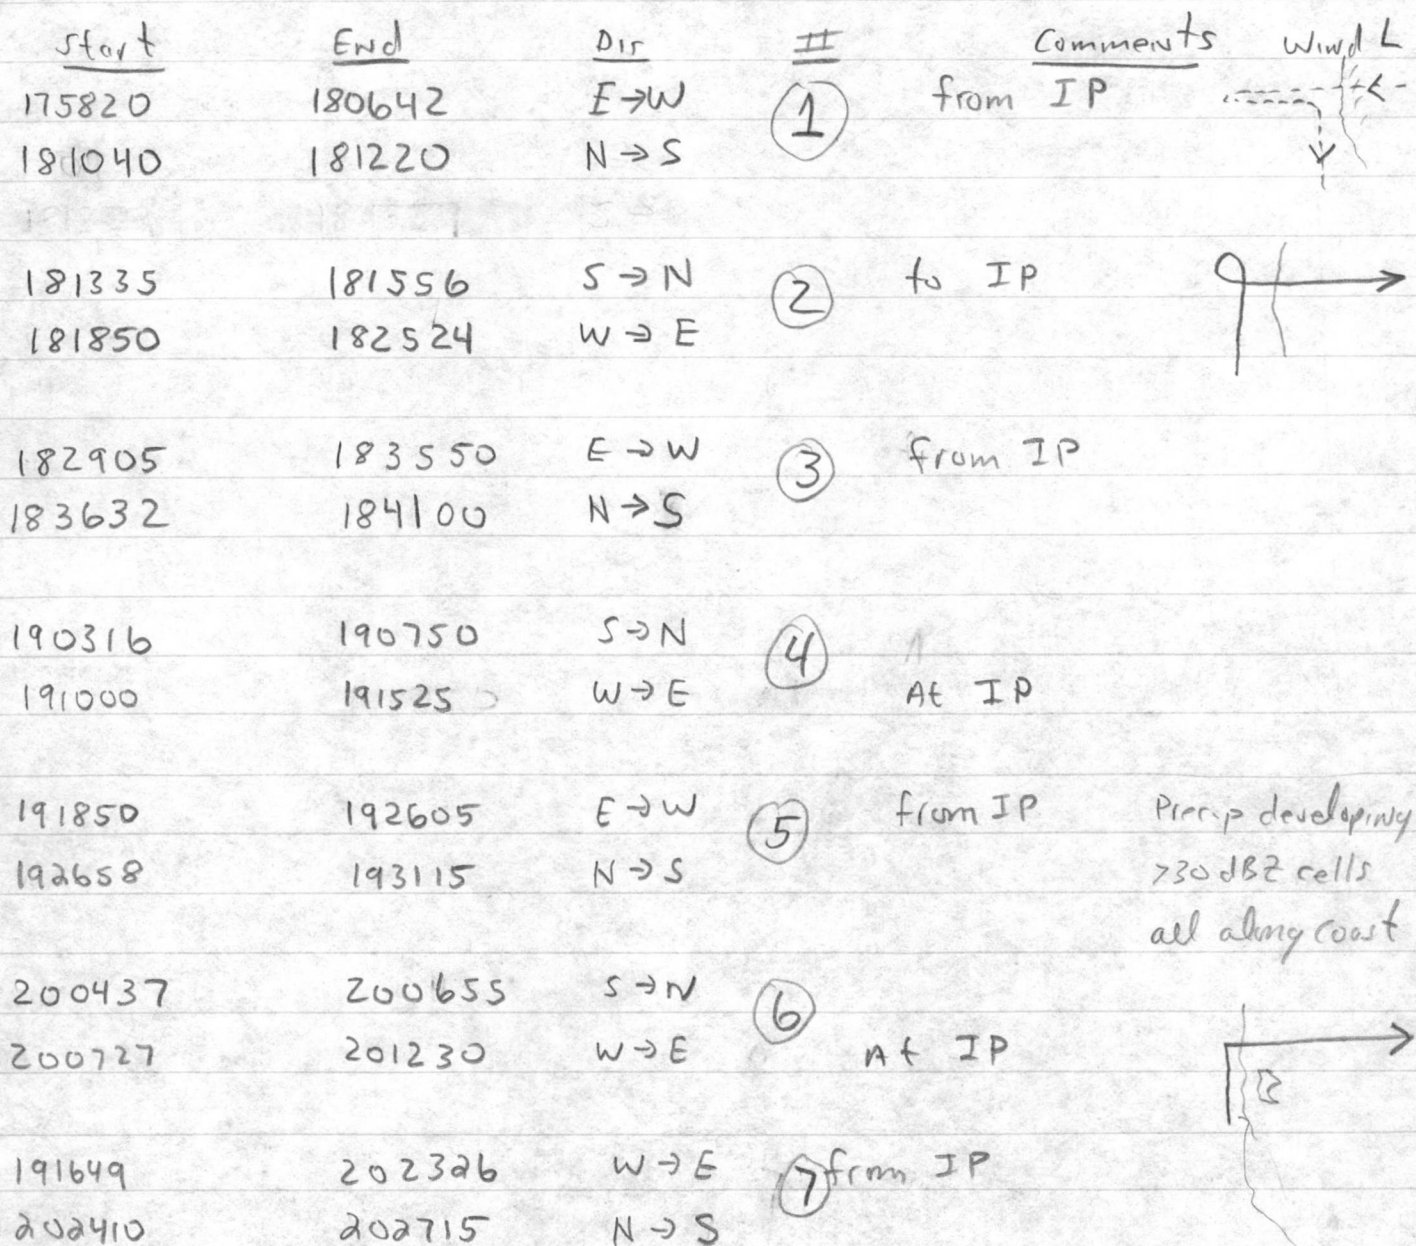 Start End Dir # Comments Wind L
175820 180642 E→W 1 from IP
181040 181220 N→S
181335 181556 S→N 2 to IP
181850 182524 W→E
182905 183550 E→W 3 from IP
183632 184100 N→S
190316 190750 S→N 4
191000 191525 W→E At IP
191850 192605 E→W 5 from IP Precip developing
192658 193115 N→S >30 dBZ cells
all along coast
200437 200655 S→N 6
200727 201230 W→E At IP
191649 202326 W→E 7 from IP
202410 202715 N→S